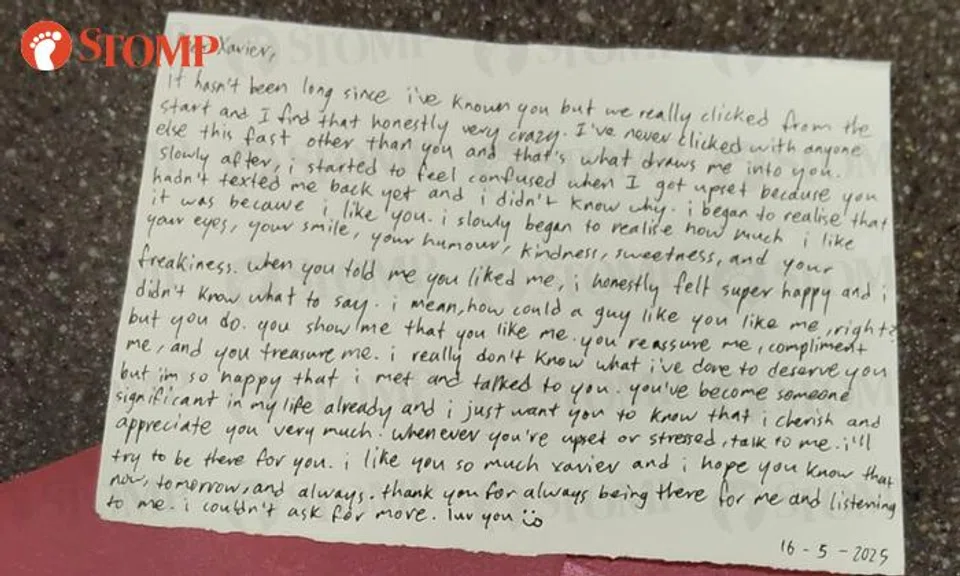 STOMP
Xavier,
it hasn't been long since i've known you but we really clicked from the
start and I find that honestly very crazy. I've never clicked with anyone
else this fast other than you and that's what draws me into you.
slowly after, i started to feel confused when I got upset because you
hadn't texted me back yet and i didn't know why. i began to realise that
it was because i like you. i slowly began to realise how much i like
your eyes, your smile, your humour, kindness, sweetness, and your
freakiness. when you told me you liked me, i honestly felt super happy and i
didn't know what to say. i mean, how could a guy like you like me, right?
but you do. you show me that you like me. you reassure me, compliment
me, and you treasure me. i really don't know what i've done to deserve you
but im so happy that i met and talked to you. you've become someone
significant in my life already and i just want you to know that i cherish and
appreciate you very much. whenever you're upset or stressed, talk to me. i'll
try to be there for you. i like you so much xavier and i hope you know that
now, tomorrow, and always. thank you for always being there for me and listening
to me. i couldn't ask for more. luv you
16-5-2025